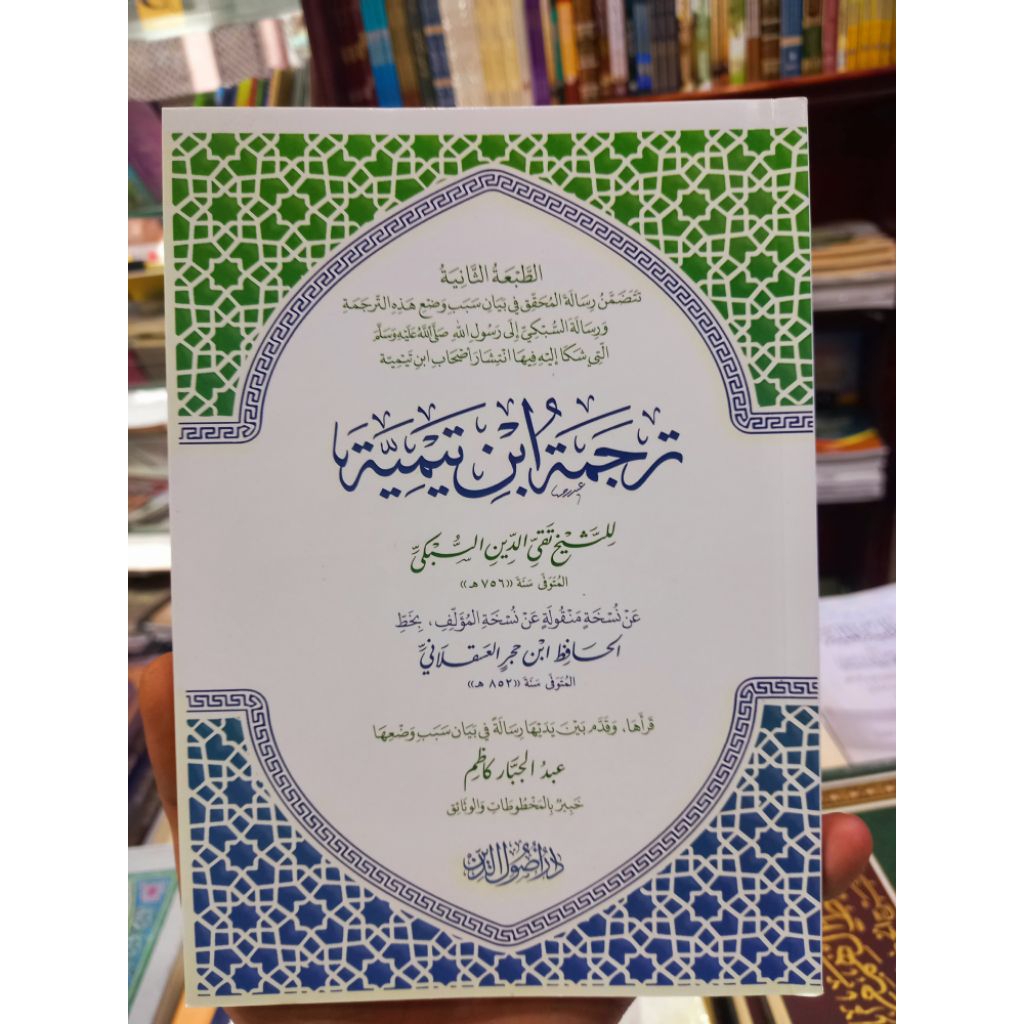 الطَّبْعَةُ الثَّانِيَةُ
تَتَضَمَّنُ رِسَالَةَ المُحَقِّقِ فِي بَيَانِ سَبَبِ وَضْعِ هَذِهِ التَّرْجَمَةِ
وَرِسَالَةَ السُّبْكِيِّ إِلَى رَسُولِ اللهِ صَلَّى اللهُ عَلَيْهِ وَسَلَّمَ
الَّتِي شَكَا إِلَيْهِ فِيهَا انْتِشَارَ أَصْحَابِ ابْنِ تَيْمِيَّة
تَرْجَمَةُ ابْنِ تَيْمِيَّةَ
لِلشَّيْخِ تَقِيِّ الدِّينِ السُّبْكِيِّ
المُتَوَفَّى سَنَةَ «٧٥٦ هـ»
عَنْ نُسْخَةٍ مَنْقُولَةٍ عَنْ نُسْخَةِ المُؤَلِّفِ، بِخَطِّ
الحَافِظِ ابْنِ حَجَرٍ العَسْقَلَانِيِّ
المُتَوَفَّى سَنَةَ «٨٥٢ هـ»
قَرَأَهَا، وَقَدَّمَ بَيْنَ يَدَيْهَا رِسَالَةً فِي بَيَانِ سَبَبِ وَضْعِهَا
عَبْدُ الجَبَّارِ كَاظِم
خَبِيرٌ بِالمَخْطُوطَاتِ وَالوَثَائِقِ
دَارُ أُصُولِ الدِّينِ